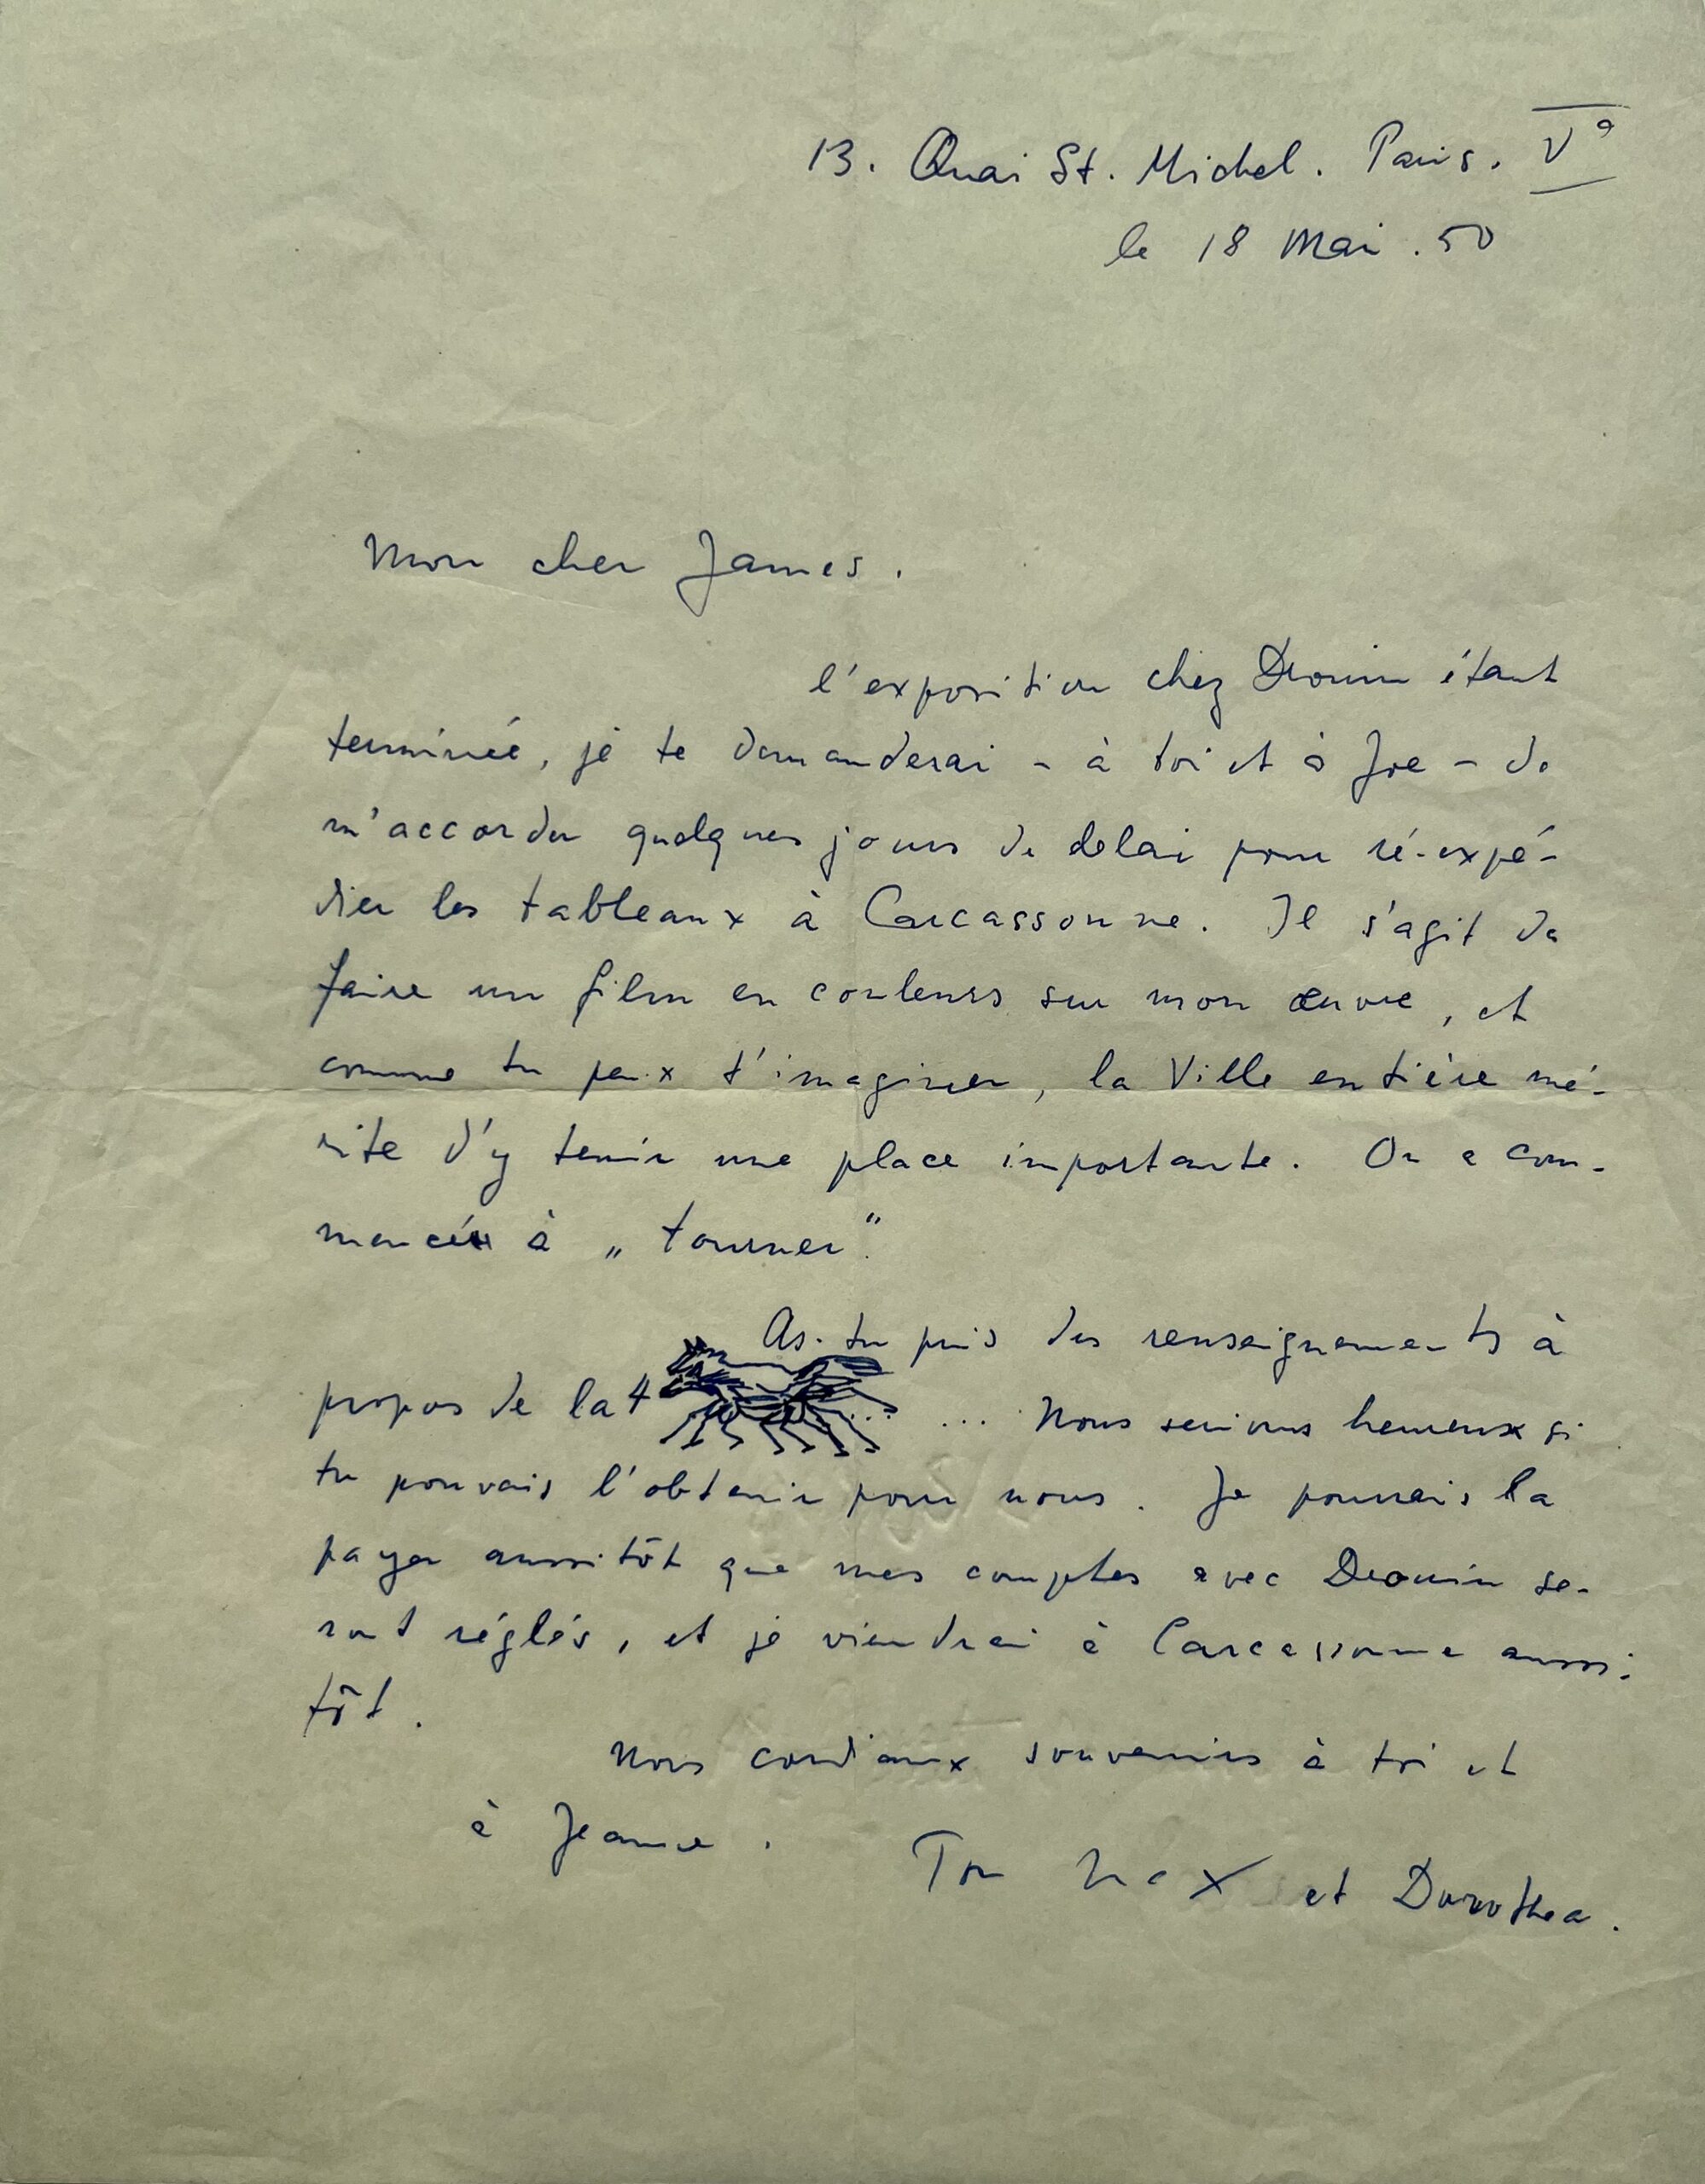 13. Quai St. Michel. Paris. Vᵉ
le 18 Mai . 50
Mon cher James.
l'exposition chez Drouin étant
terminée, je te demanderai – à toi et à Joe – de
m'accorder quelques jours de delai pour ré-expé-
dier les tableaux à Carcassonne. Il s'agit de
faire un film en couleurs sur mon œuvre, et
comme tu peux t'imaginer, la Ville entière mé-
rite d'y tenir une place importante. On a com-
mencé à „tourner".
As-tu pris des renseignements à
propos de la 4 ... ... Nous serions heureux si
tu pouvais l'obtenir pour nous. Je pourrais la
payer aussitôt que mes comptes avec Drouin se-
ront réglés, et je viendrai à Carcassonne aussi-
tôt.
Nos cordiaux souvenirs à toi et
à Jeanne.
Ton Max et Dorothea.